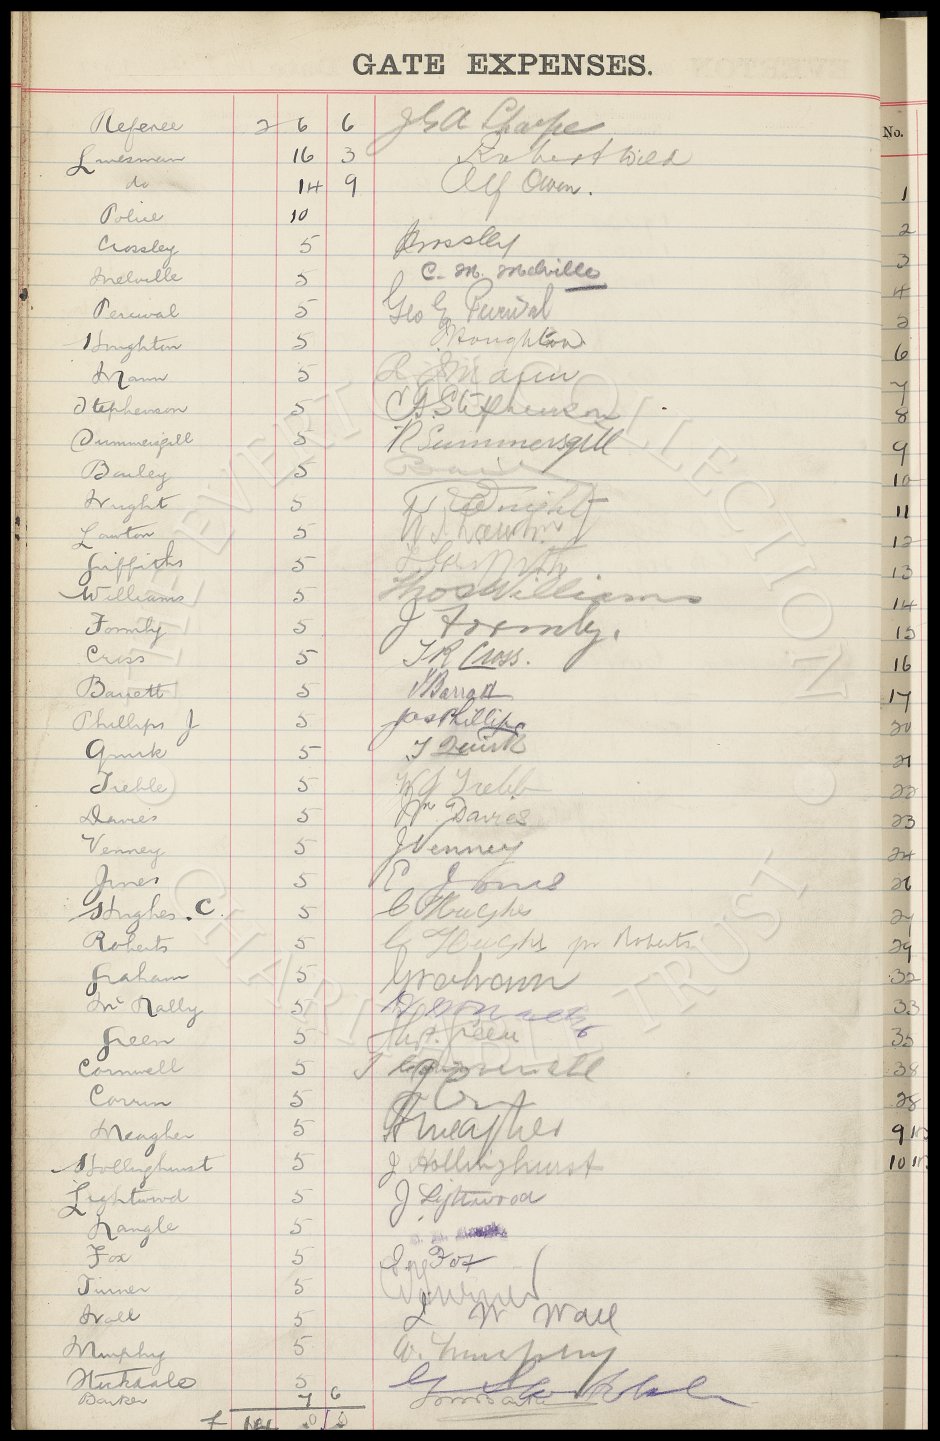 GATE EXPENSES.
No.
Referee 2 6 6 J G A Sharpe
Linesman 16 3 Robert Wild
do 14 9 Alf Owen. 1
Police 10 2
Crossley 5 Crossley 3
Melville 5 C. M. Melville 4
Percival 5 Geo E Percival 5
Houghton 5 Houghton 6
Mann 5 Mann 7
Stephenson 5 Stephenson 8
Summersgill 5 R Summersgill 9
Bailey 5 10
Wright 5 Wright 11
Lawton 5 Lawton 12
Griffiths 5 13
Williams 5 Thos Williams 14
Formby 5 J Formby. 15
Cross 5 T R Cross. 16
Barrett 5 Barratt 17
Phillips J 5 Jas Phillips 20
Quirk 5 T Quirk 21
Treble 5 W J Treble 22
Davies 5 Wm. Davies 23
Venney 5 J Venney 24
Jones 5 E Jones 26
Hughes. C. 5 C Hughes 27
Roberts 5 C Hughes pr Roberts 29
Graham 5 Graham 32
McNally 5 McNally 33
Green 5 Green 35
Cornwell 5 38
Corrin 5 28
Meagher 5 Meagher 9
Hollinghurst 5 J Hollinghurst 10
Lightwood 5 J Lightwood
Nangle 5
Fox 5 Fox
Turner 5 Turner
Wall 5 W Wall
Murphy 5 W. Murphy
5
Barker 7 6
£
EVERTON COLLECTION
CHARITABLE TRUST